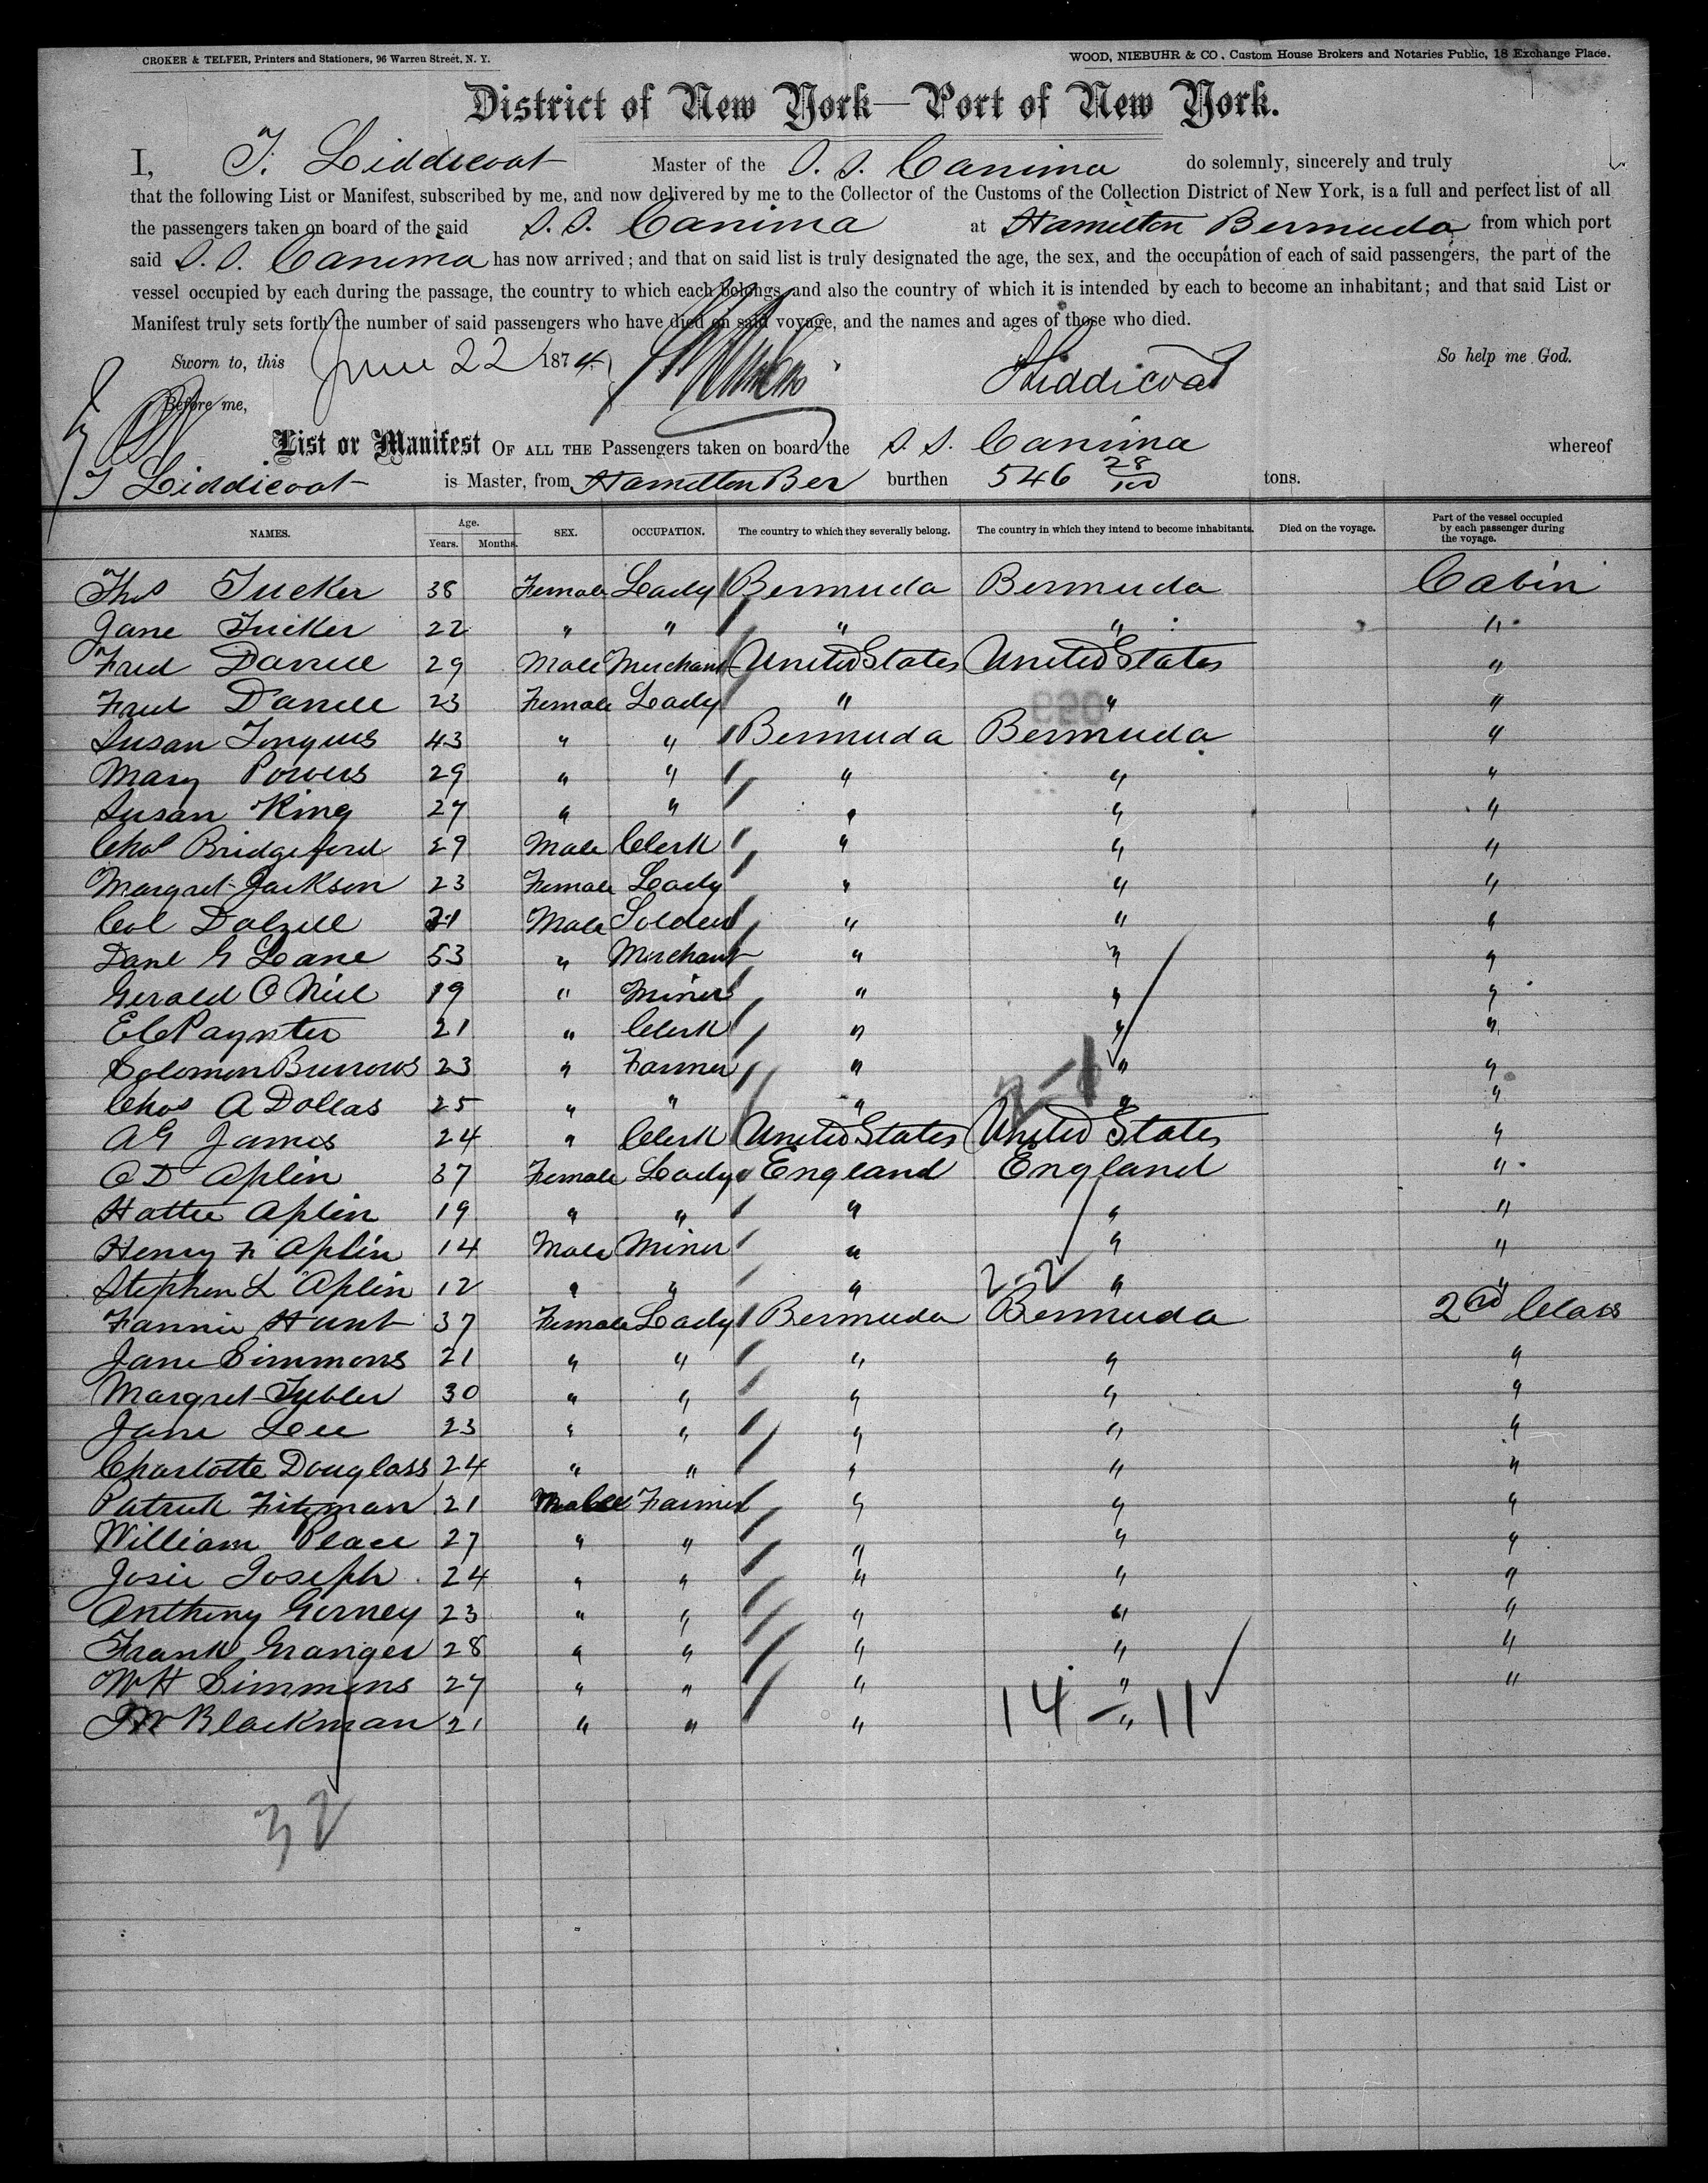 CROKER & TELFER, Printers and Stationers, 96 Warren Street, N. Y.
WOOD, NIEBUHR & CO., Custom House Brokers and Notaries Public, 18 Exchange Place.
District of New York—Port of New York.
I, T. Liddicoat Master of the S. S. Canima do solemnly, sincerely and truly
that the following List or Manifest, subscribed by me, and now delivered by me to the Collector of the Customs of the Collection District of New York, is a full and perfect list of all
the passengers taken on board of the said S. S. Canima at Hamilton Bermuda from which port
said S. S. Canima has now arrived; and that on said list is truly designated the age, the sex, and the occupation of each of said passengers, the part of the
vessel occupied by each during the passage, the country to which each belongs, and also the country of which it is intended by each to become an inhabitant; and that said List or
Manifest truly sets forth the number of said passengers who have died on said voyage, and the names and ages of those who died.
Sworn to, this June 22 1874. So help me God.
Liddicoat
Before me,
List or Manifest OF ALL THE Passengers taken on board the S. S. Canima whereof
T Liddicoat is Master, from Hamilton Ber burthen 546 28/100 tons.
NAMES. Age. Years. Months. SEX. OCCUPATION. The country to which they severally belong. The country in which they intend to become inhabitants. Died on the voyage. Part of the vessel occupied by each passenger during the voyage.
Thos Tucker 38 Female Lady Bermuda Bermuda Cabin
Jane Tucker 22 " " " " "
Fred Darrell 29 Male Merchant United States United States "
Fred Darrell 23 Female Lady " " "
Susan 43 " " Bermuda Bermuda "
Mary Powers 29 " " " " "
Susan King 27 " " " " "
Chas Bridgeford 29 Male Clerk " " "
Margret Jackson 23 Female Lady " " "
Col Dalzell Male Soldier " " "
Danl G Lane 53 " Merchant " " "
Gerald O Neil 19 " Miner " " "
E C Paynter 21 " Clerk " " "
Solomon Burrows 23 " Farmer " " "
Chas A Dollas 25 " " " " "
2-1
A G James 24 " Clerk United States United States "
C D Aplin 37 Female Lady England England "
Hattie Aplin 19 " " " " "
Henry F Aplin 14 Male Miner " " "
Stephen L Aplin 12 " " " " "
2-2
Fannie Hunt 37 Female Lady Bermuda Bermuda 2nd Class
Jane Simmons 21 " " " " "
Margret Tubler 30 " " " " "
Jane Lee 23 " " " " "
Charlotte Douglass 24 " " " " "
Patrick Fitzman 21 Male Farmer " " "
William Place 27 " " " " "
Josie Joseph 24 " " " " "
Anthony Gorney 23 " " " " "
Frank Granger 28 " " " " "
W H Simmons 27 " " " " "
Blackman 21 " " " "
14-11
32